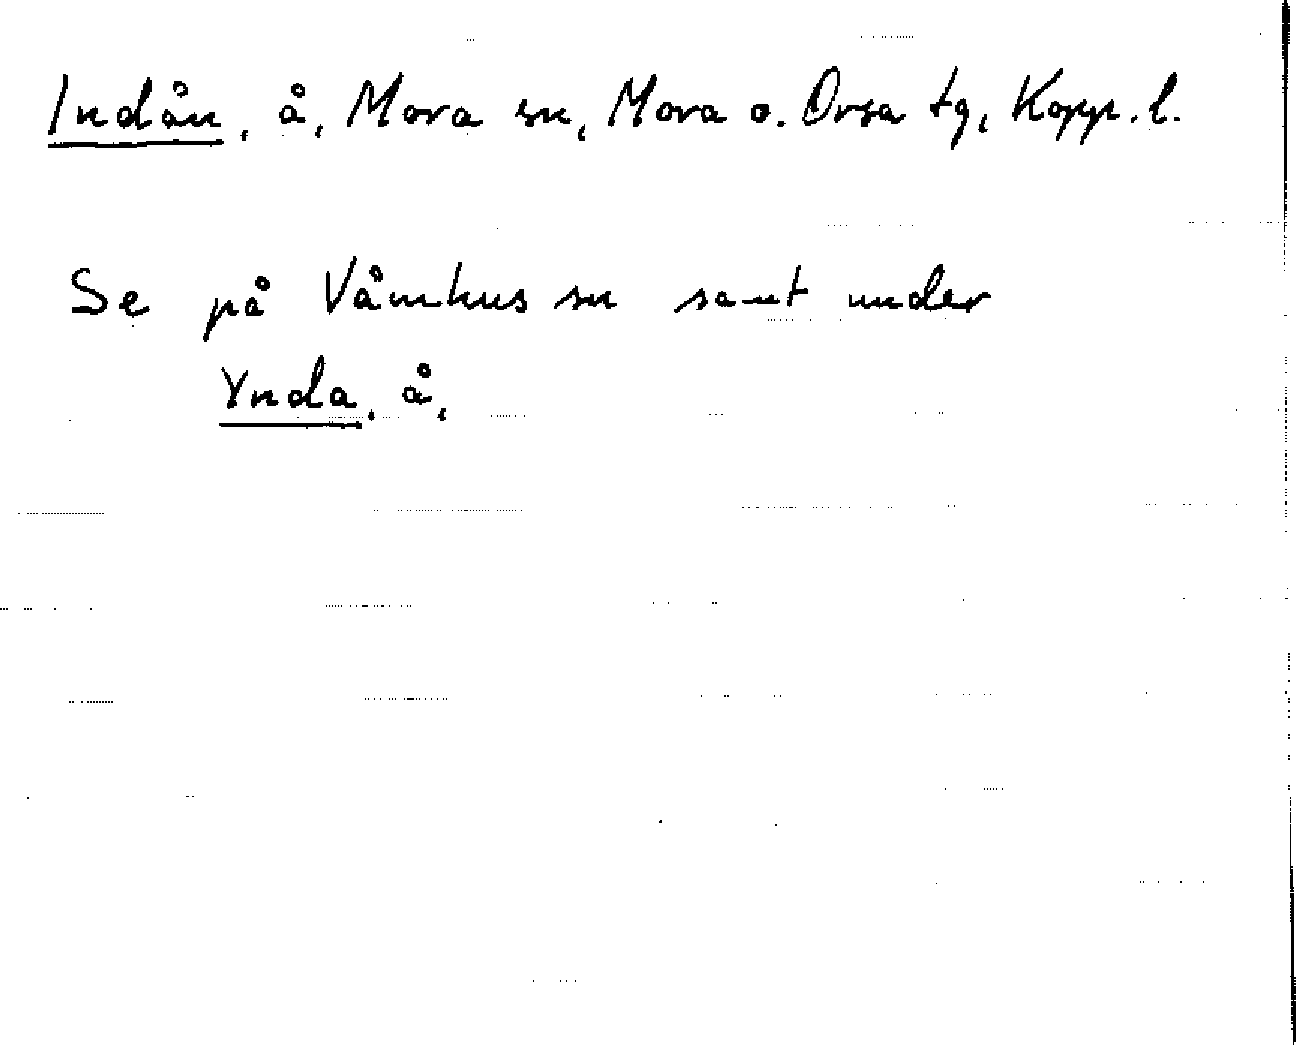 Indån, å, Mora sn, Mora o. Orsa tg, Kopp. l.
Se på Våmhus sn samt under
Ynda, å,